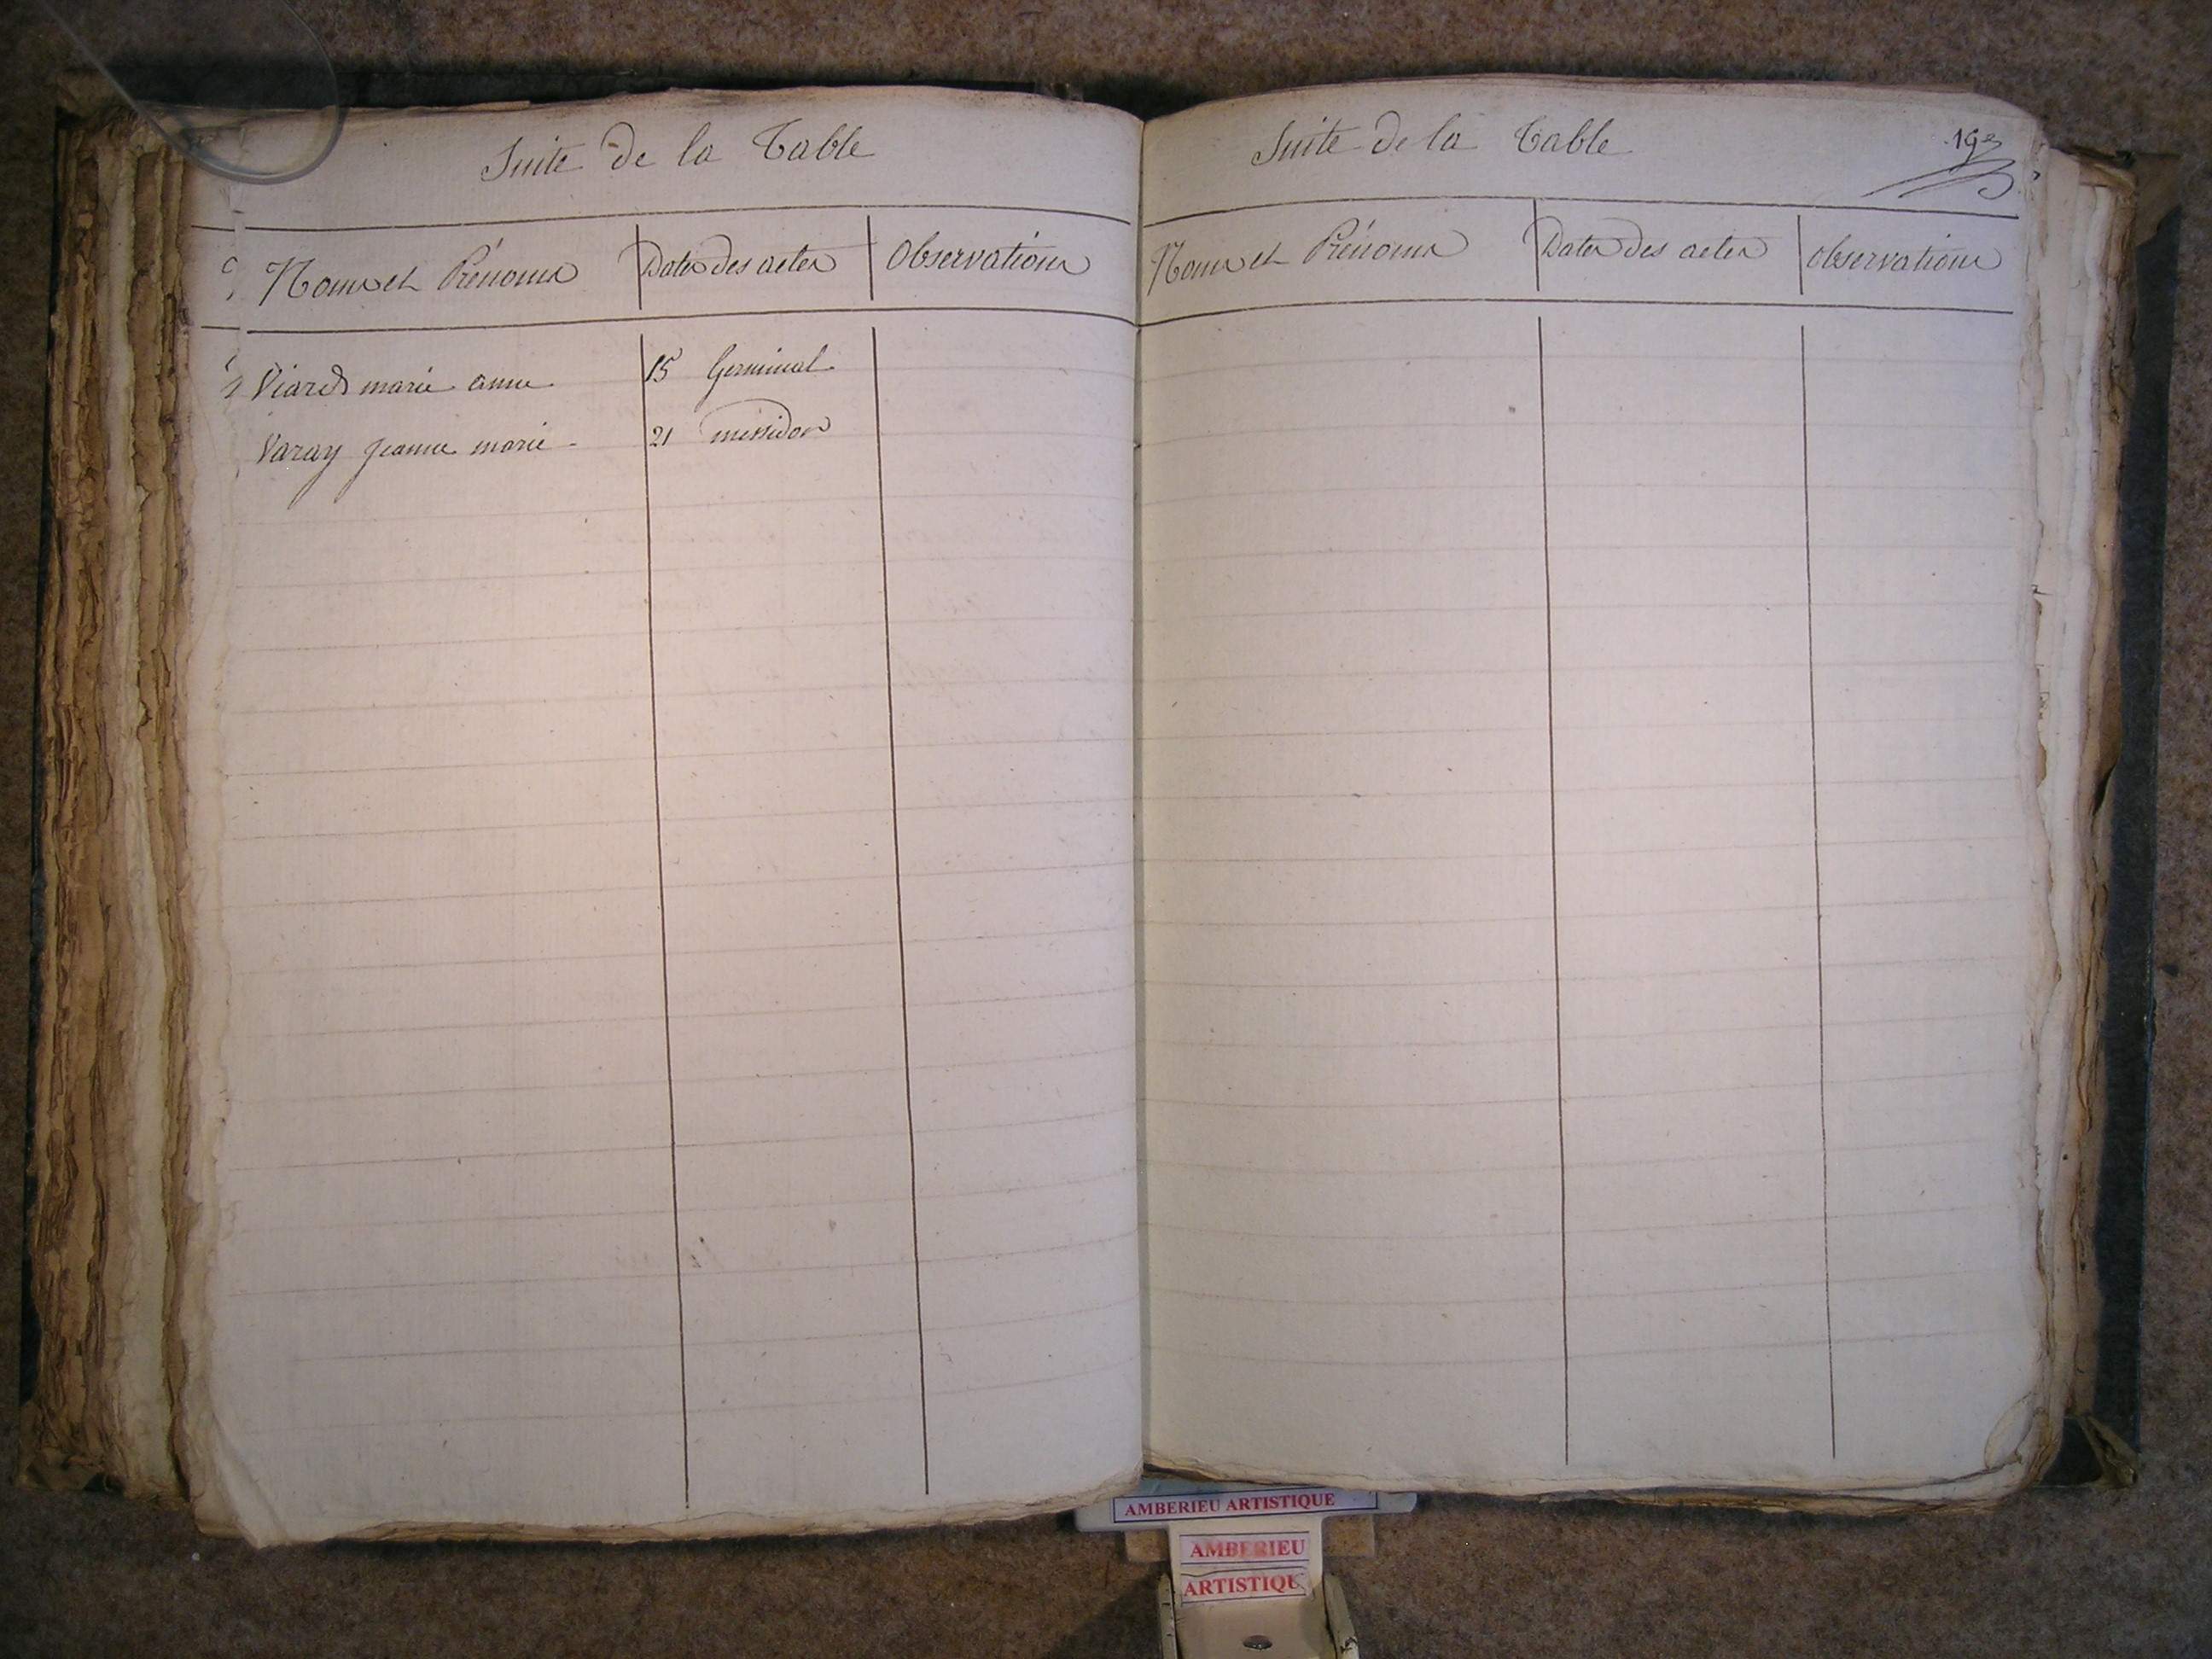 Suite de la Table
Noms et Prénoms Dates des actes Observations
Viard marie anne 15 Germinal
Varay jeanne marie - 21 messidor
Suite de la Table
193
Noms et Prénoms Dates des actes Observations
AMBERIEU ARTISTIQUE
AMBERIEU
ARTISTIQUE